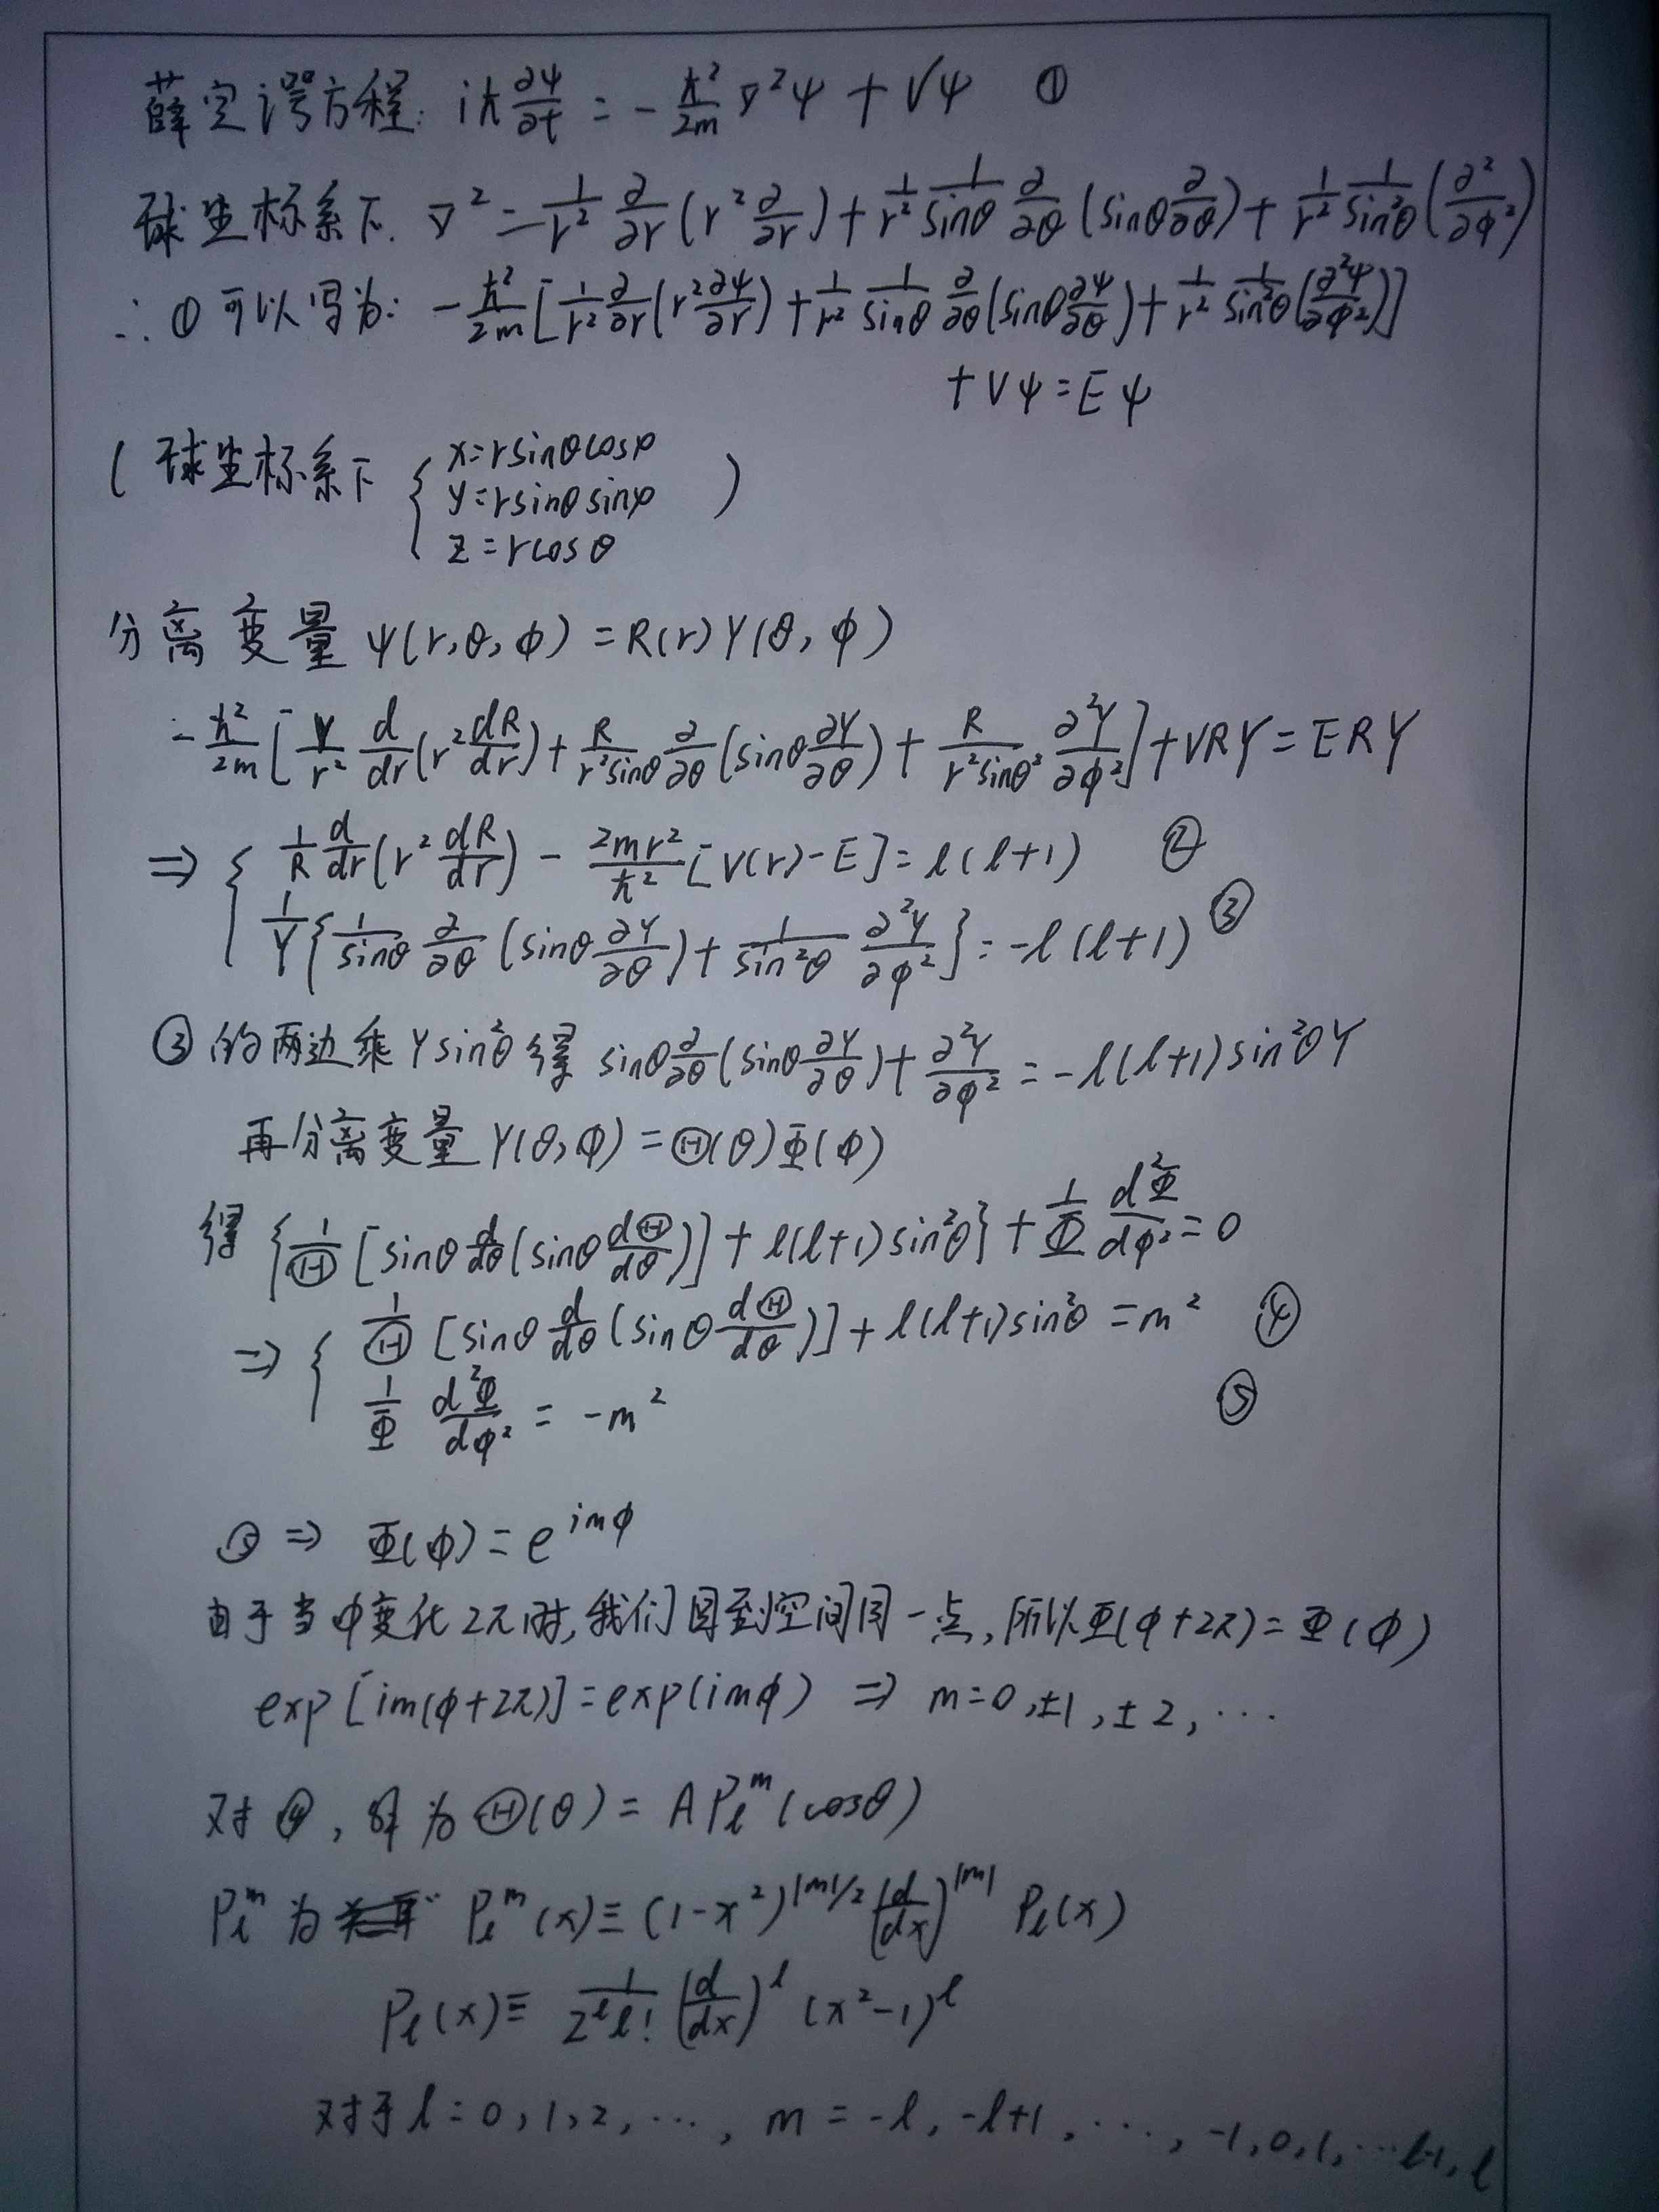 薛定谔方程: iℏ ∂ψ/∂t = - ℏ²/2m ∇²ψ + Vψ ①
球坐标系下. ∇² = 1/r² ∂/∂r (r² ∂/∂r) + 1/r² 1/sinθ ∂/∂θ (sinθ ∂/∂θ) + 1/r² 1/sin²θ (∂²/∂φ²)
∴ ①可以写为: - ℏ²/2m [1/r² ∂/∂r (r² ∂ψ/∂r) + 1/r² 1/sinθ ∂/∂θ (sinθ ∂ψ/∂θ) + 1/r² 1/sin²θ (∂²ψ/∂φ²)]
+ Vψ = Eψ
( 球坐标系下 { x = rsinθcosφ
y = rsinθsinφ )
z = rcosθ
分离变量 ψ(r,θ,φ) = R(r)Y(θ,φ)
- ℏ²/2m [Y/r² d/dr (r² dR/dr) + R/r²sinθ ∂/∂θ (sinθ ∂Y/∂θ) + R/r²sinθ² ∂²Y/∂φ²] + VRY = ERY
⇒ { 1/R d/dr (r² dR/dr) - 2mr²/ℏ² [V(r)-E] = l(l+1) ②
1/Y {1/sinθ ∂/∂θ (sinθ ∂Y/∂θ) + 1/sin²θ ∂²Y/∂φ²} = -l(l+1) ③
③的两边乘Ysin²θ得 sinθ ∂/∂θ (sinθ ∂Y/∂θ) + ∂²Y/∂φ² = -l(l+1)sin²θY
再分离变量 Y(θ,φ) = Θ(θ)Φ(φ)
得 {1/Θ [sinθ d/dθ (sinθ dΘ/dθ)] + l(l+1)sin²θ} + 1/Φ d²Φ/dφ² = 0
⇒ { 1/Θ [sinθ d/dθ (sinθ dΘ/dθ)] + l(l+1)sin²θ = m² ④
1/Φ d²Φ/dφ² = -m² ⑤
⑤ ⇒ Φ(φ) = e^{imφ}
由于当φ变化2π时,我们回到空间同一点,所以Φ(φ+2π) = Φ(φ)
exp[im(φ+2π)] = exp(imφ) ⇒ m=0,±1,±2,···
对④,解为 Θ(θ) = AP_l^m(cosθ)
P_l^m 为 P_l^m(x) ≡ (1-x²)^{|m|/2} (d/dx)^{|m|} P_l(x)
P_l(x) ≡ 1/2^l l! (d/dx)^l (x²-1)^l
对于l=0,1,2,···, m = -l, -l+1, ···, -1,0,1,···l-1,l